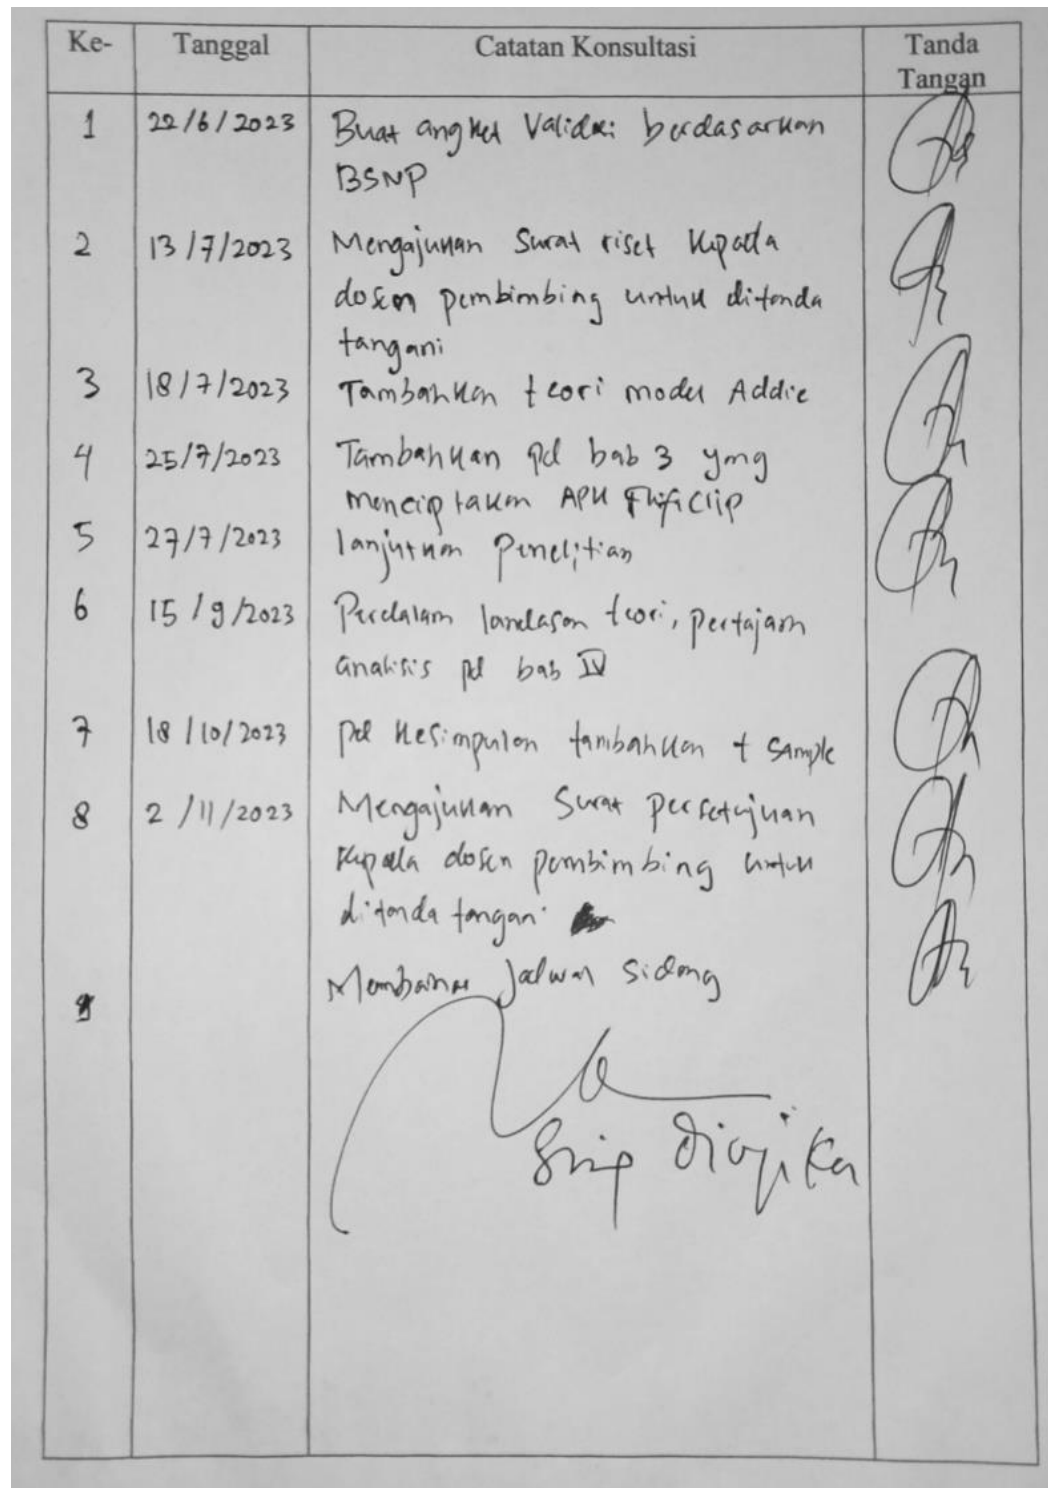 Ke- Tanggal Catatan Konsultasi Tanda Tangan
1 22/6/2023 Buat angket Validasi berdasarkan
BSNP
2 13/7/2023 Mengajukan Surat riset kepada
dosen pembimbing untuk ditanda
tangani
3 18/7/2023 Tambahkan teori model Addie
4 25/7/2023 Tambahkan pd bab 3 yang
menciptakan APK
5 27/7/2023 lanjutkan Penelitian
6 15/9/2023 Perdalam landasan teori, pertajam
analisis pd bab IV
7 18/10/2023 pd kesimpulan tambahkan t sample
8 2/11/2023 Mengajukan Surat persetujuan
kepada dosen pembimbing untuk
ditanda tangan
9 Jadwal Sidang